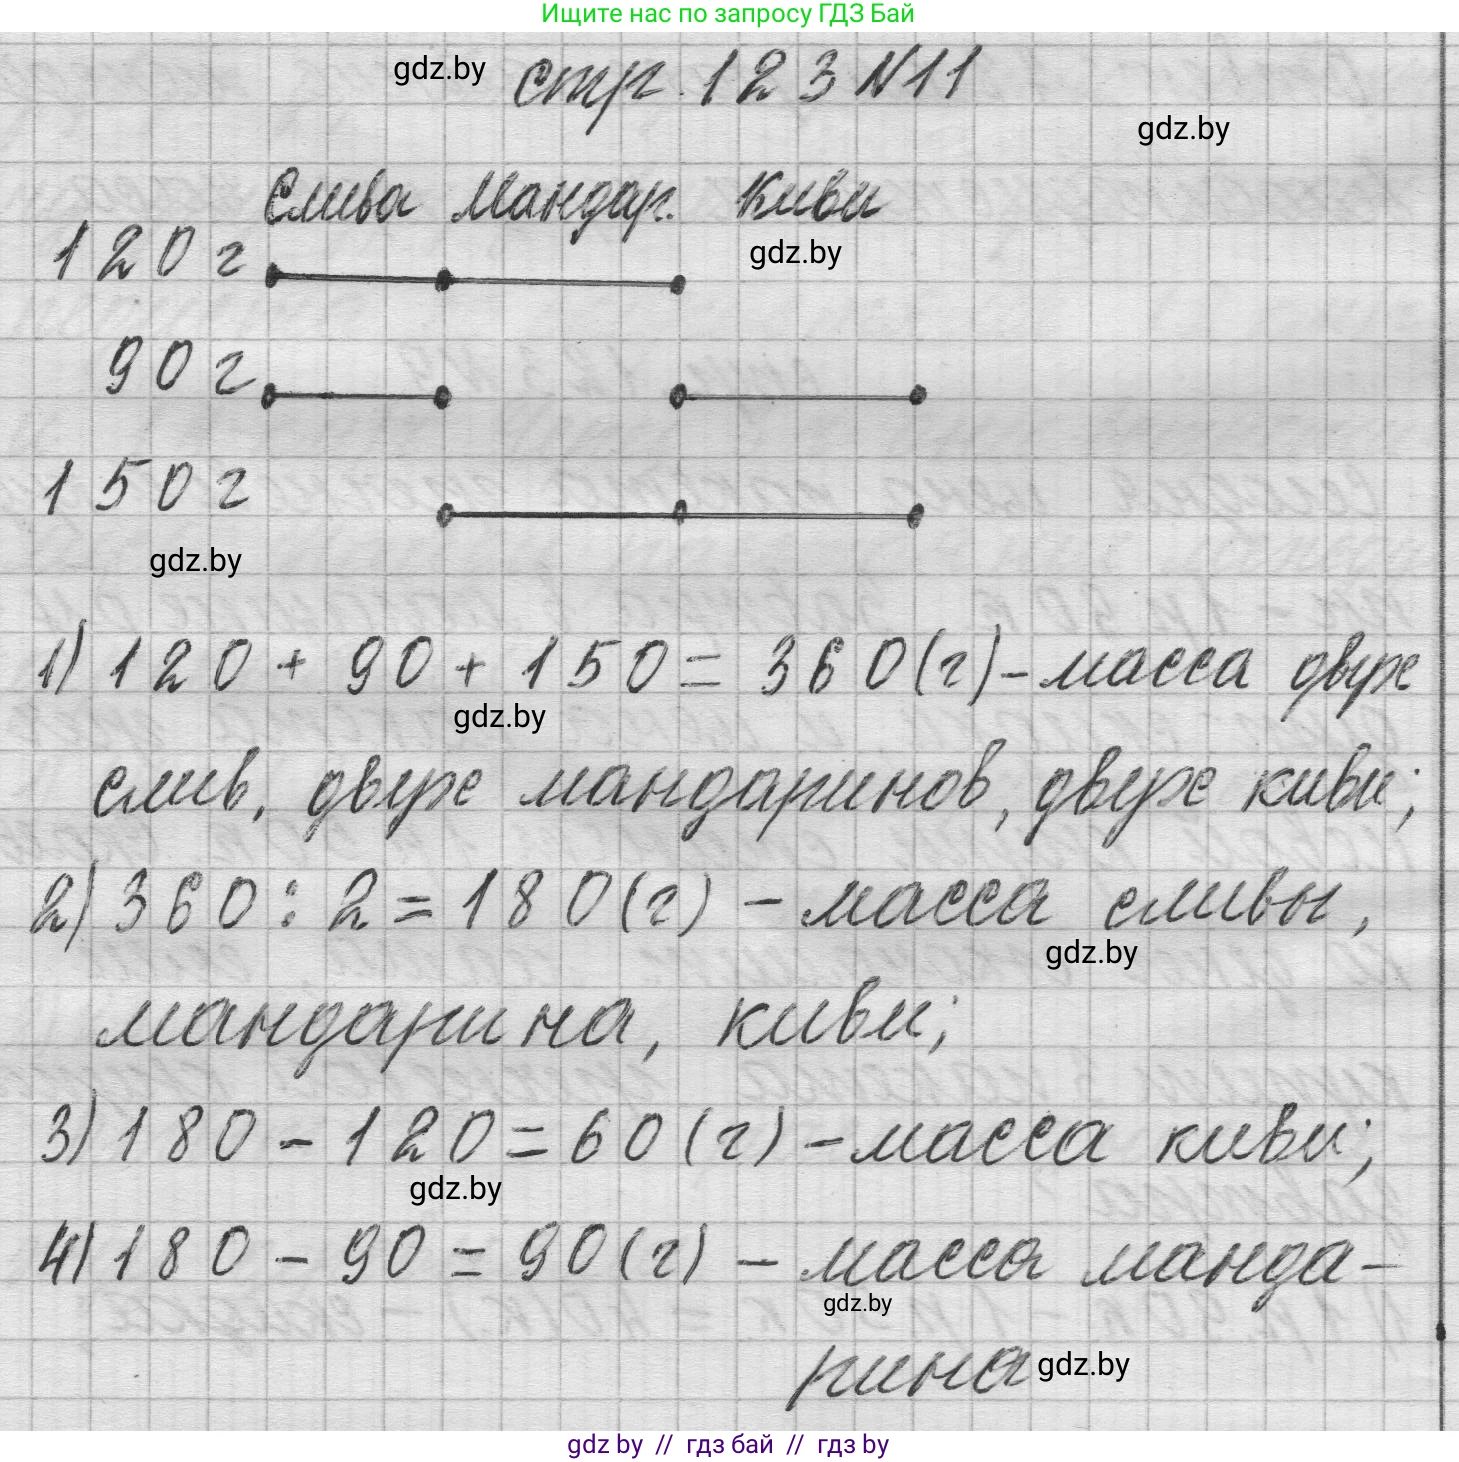 Ищите нас по запросу ГДЗ Бай
gdz.by
стр. 123 N11
gdz.by
Слива Мандар. Киви
gdz.by
120 г
90 г
150 г
gdz.by
1) 120 + 90 + 150 = 360 (г) - масса двух
gdz.by
слив, двух мандаринов, двух киви;
2) 360 : 2 = 180 (г) - масса сливы,
gdz.by
мандарина, киви;
3) 180 - 120 = 60 (г) - масса киви;
gdz.by
4) 180 - 90 = 90 (г) - масса манда-
gdz.by
рина
gdz.by
gdz by // гдз бай // гдз by